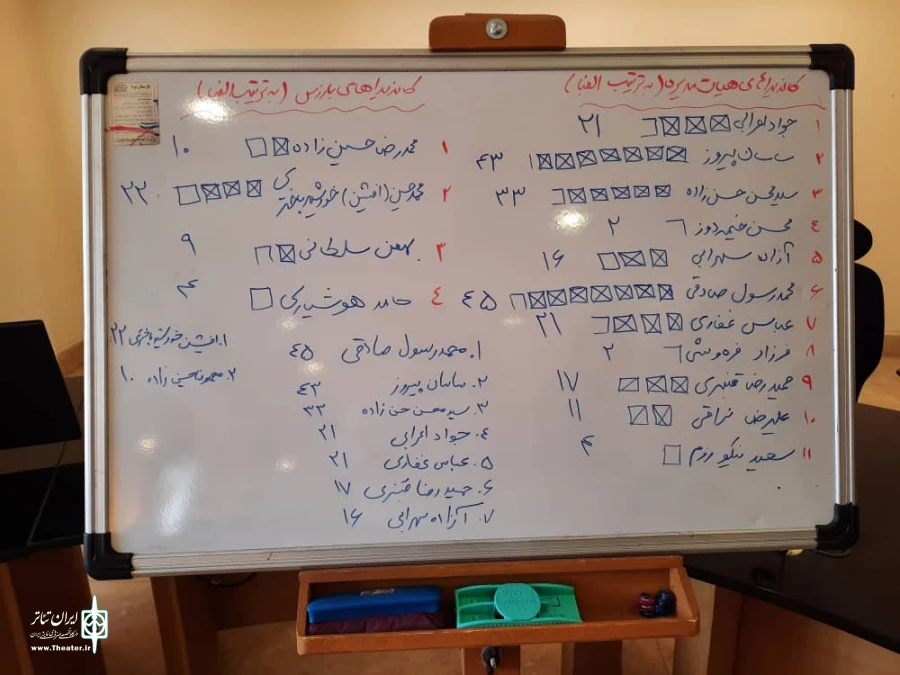 کاندیداهای هیات مدیره (به ترتیب الفبا)
۱ جواد اعرابی ۲۱
۲ ساسان پیروز ۴۳
۳ سیدمحسن حسن زاده ۳۳
۴ محسن خیمه دوز ۲
۵ آزاده سهرابی ۱۶
۶ محمدرسول صادقی ۴۵
۷ عباس غفاری ۲۱
۸ فرزاد ۲
۹ حمیدرضا قنبری ۱۷
۱۰ علیرضا نراقی ۱۱
۱۱ سعید نیکورزم ۴
کاندیداهای بازرس (به ترتیب الفبا)
۱ محمدرضا حسین زاده ۱۰
۲ محمدحسین (افشین) خورشیدباختری ۲۲
۳ بهمن سلطانی ۹
۴ حامد هوشیاری ۴
۱. محمدرسول صادقی ۴۵
۲. ساسان پیروز ۴۳
۳. سیدمحسن حسن زاده ۳۳
۴. جواد اعرابی ۲۱
۵. عباس غفاری ۲۱
۶. حمیدرضا قنبری ۱۷
۷. آزاده سهرابی ۱۶
۱. افشین خورشیدباختری ۲۲
۲. حسین زاده ۱۰
ایران تئاتر
www.Theater.ir